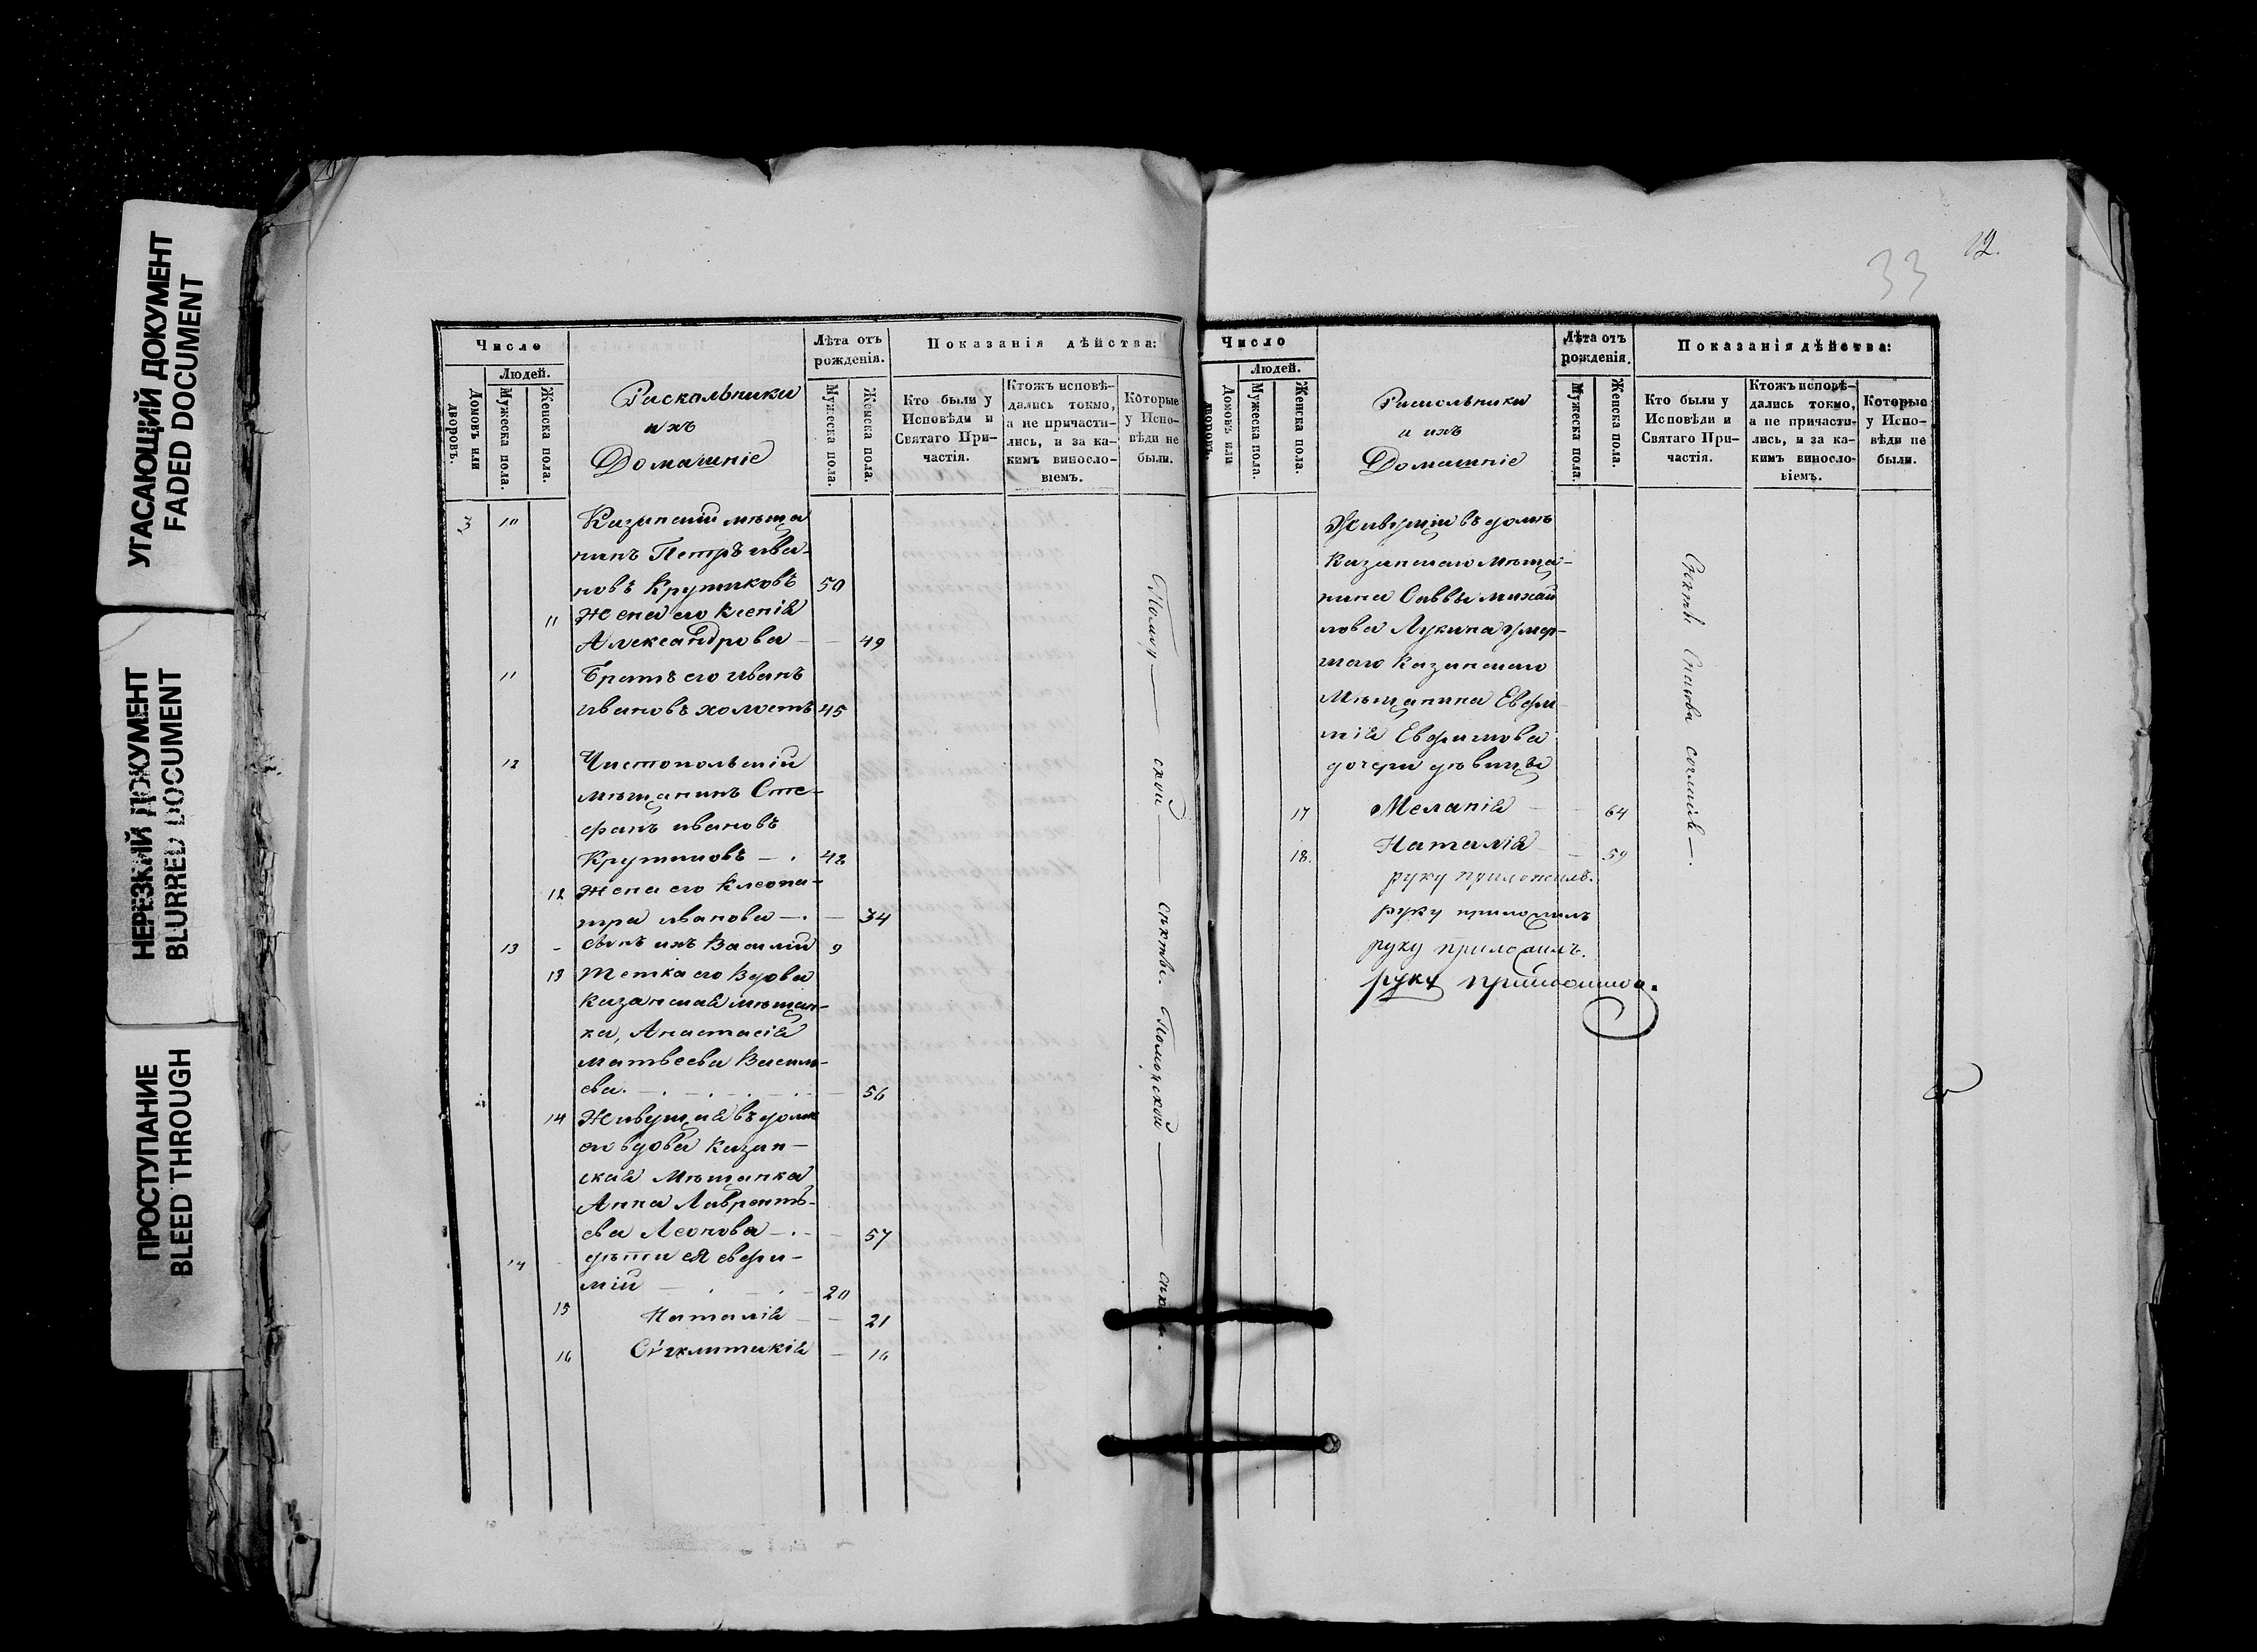 УГАСАЮЩИЙ ДОКУМЕНТ
FADED DOCUMENT
НЕРЕЗКИЙ ДОКУМЕНТ
BLURRED DOCUMENT
ПРОСТУПАНИЕ
BLEED THROUGH
Число
Людей.
Домовъ или дворовъ.
Мужеска пола.
Женска пола.
Раскольники
и ихъ
Домашніе
Лѣта отъ
рожденія.
Мужеска пола.
Женска пола.
Показанія дѣйства:
Кто были у
Исповѣди и
Святаго При-
частія.
Ктожъ исповѣ-
дались токмо,
а не причасти-
лись, и за ка-
кимъ винosло-
віемъ.
Которые
у Испо-
вѣди не
были.
3 10 Казанскій мѣща
нинъ Петръ Ива-
новъ Крупниковъ 50
11 Жена его Ксенія
Александрова — — 49
11 Братъ его Иванъ
Ивановъ холостъ 45
12 Чистопольскій
мѣщанинъ Сте-
фанъ Ивановъ
42
12 Жена его Клеопа-
тра Иванова — — 34
13 - сынъ ихъ Василій 9
13 Тетка его Вдова
Казанская мѣщан-
ка, Анастасія
Матвеева Василь-
ева. — 56
14 Живущая въ домѣ
его вдова Казан-
ская Мѣщанка
Анна Лаврентъ-
ева Леонова — - 57
14 дѣти ея Евфи-
мій — 20
15 Наталія — - 21
16 Сѵгклитикія — 16
Поморской
секты.
12.
33
Число
Людей.
Домовъ или дворовъ.
Мужеска пола.
Женска пола.
Раскольники
и ихъ
Домашніе
Лѣта отъ
рожденія.
Мужеска пола.
Женска пола.
Показанія дѣйства:
Кто были у
Исповѣди и
Святаго При-
частія.
Ктожъ исповѣ-
дались токмо,
а не причасти-
лись, и за ка-
кимъ винosло-
віемъ.
Которые
у Испо-
вѣди не
были.
Живущіи въ домѣ
Казанскаго мѣща-
нина Саввы Михай
лова Лукина умер-
шаго Казанскаго
Мѣщанина Евфи
мія Евфимова
дочери дѣвицы
17 Меланія — — 64
18. Наталія — 59
руку приложилъ.
руку приложилъ
руку приложилъ.
руку приложилъ.
Спасова согласія —.